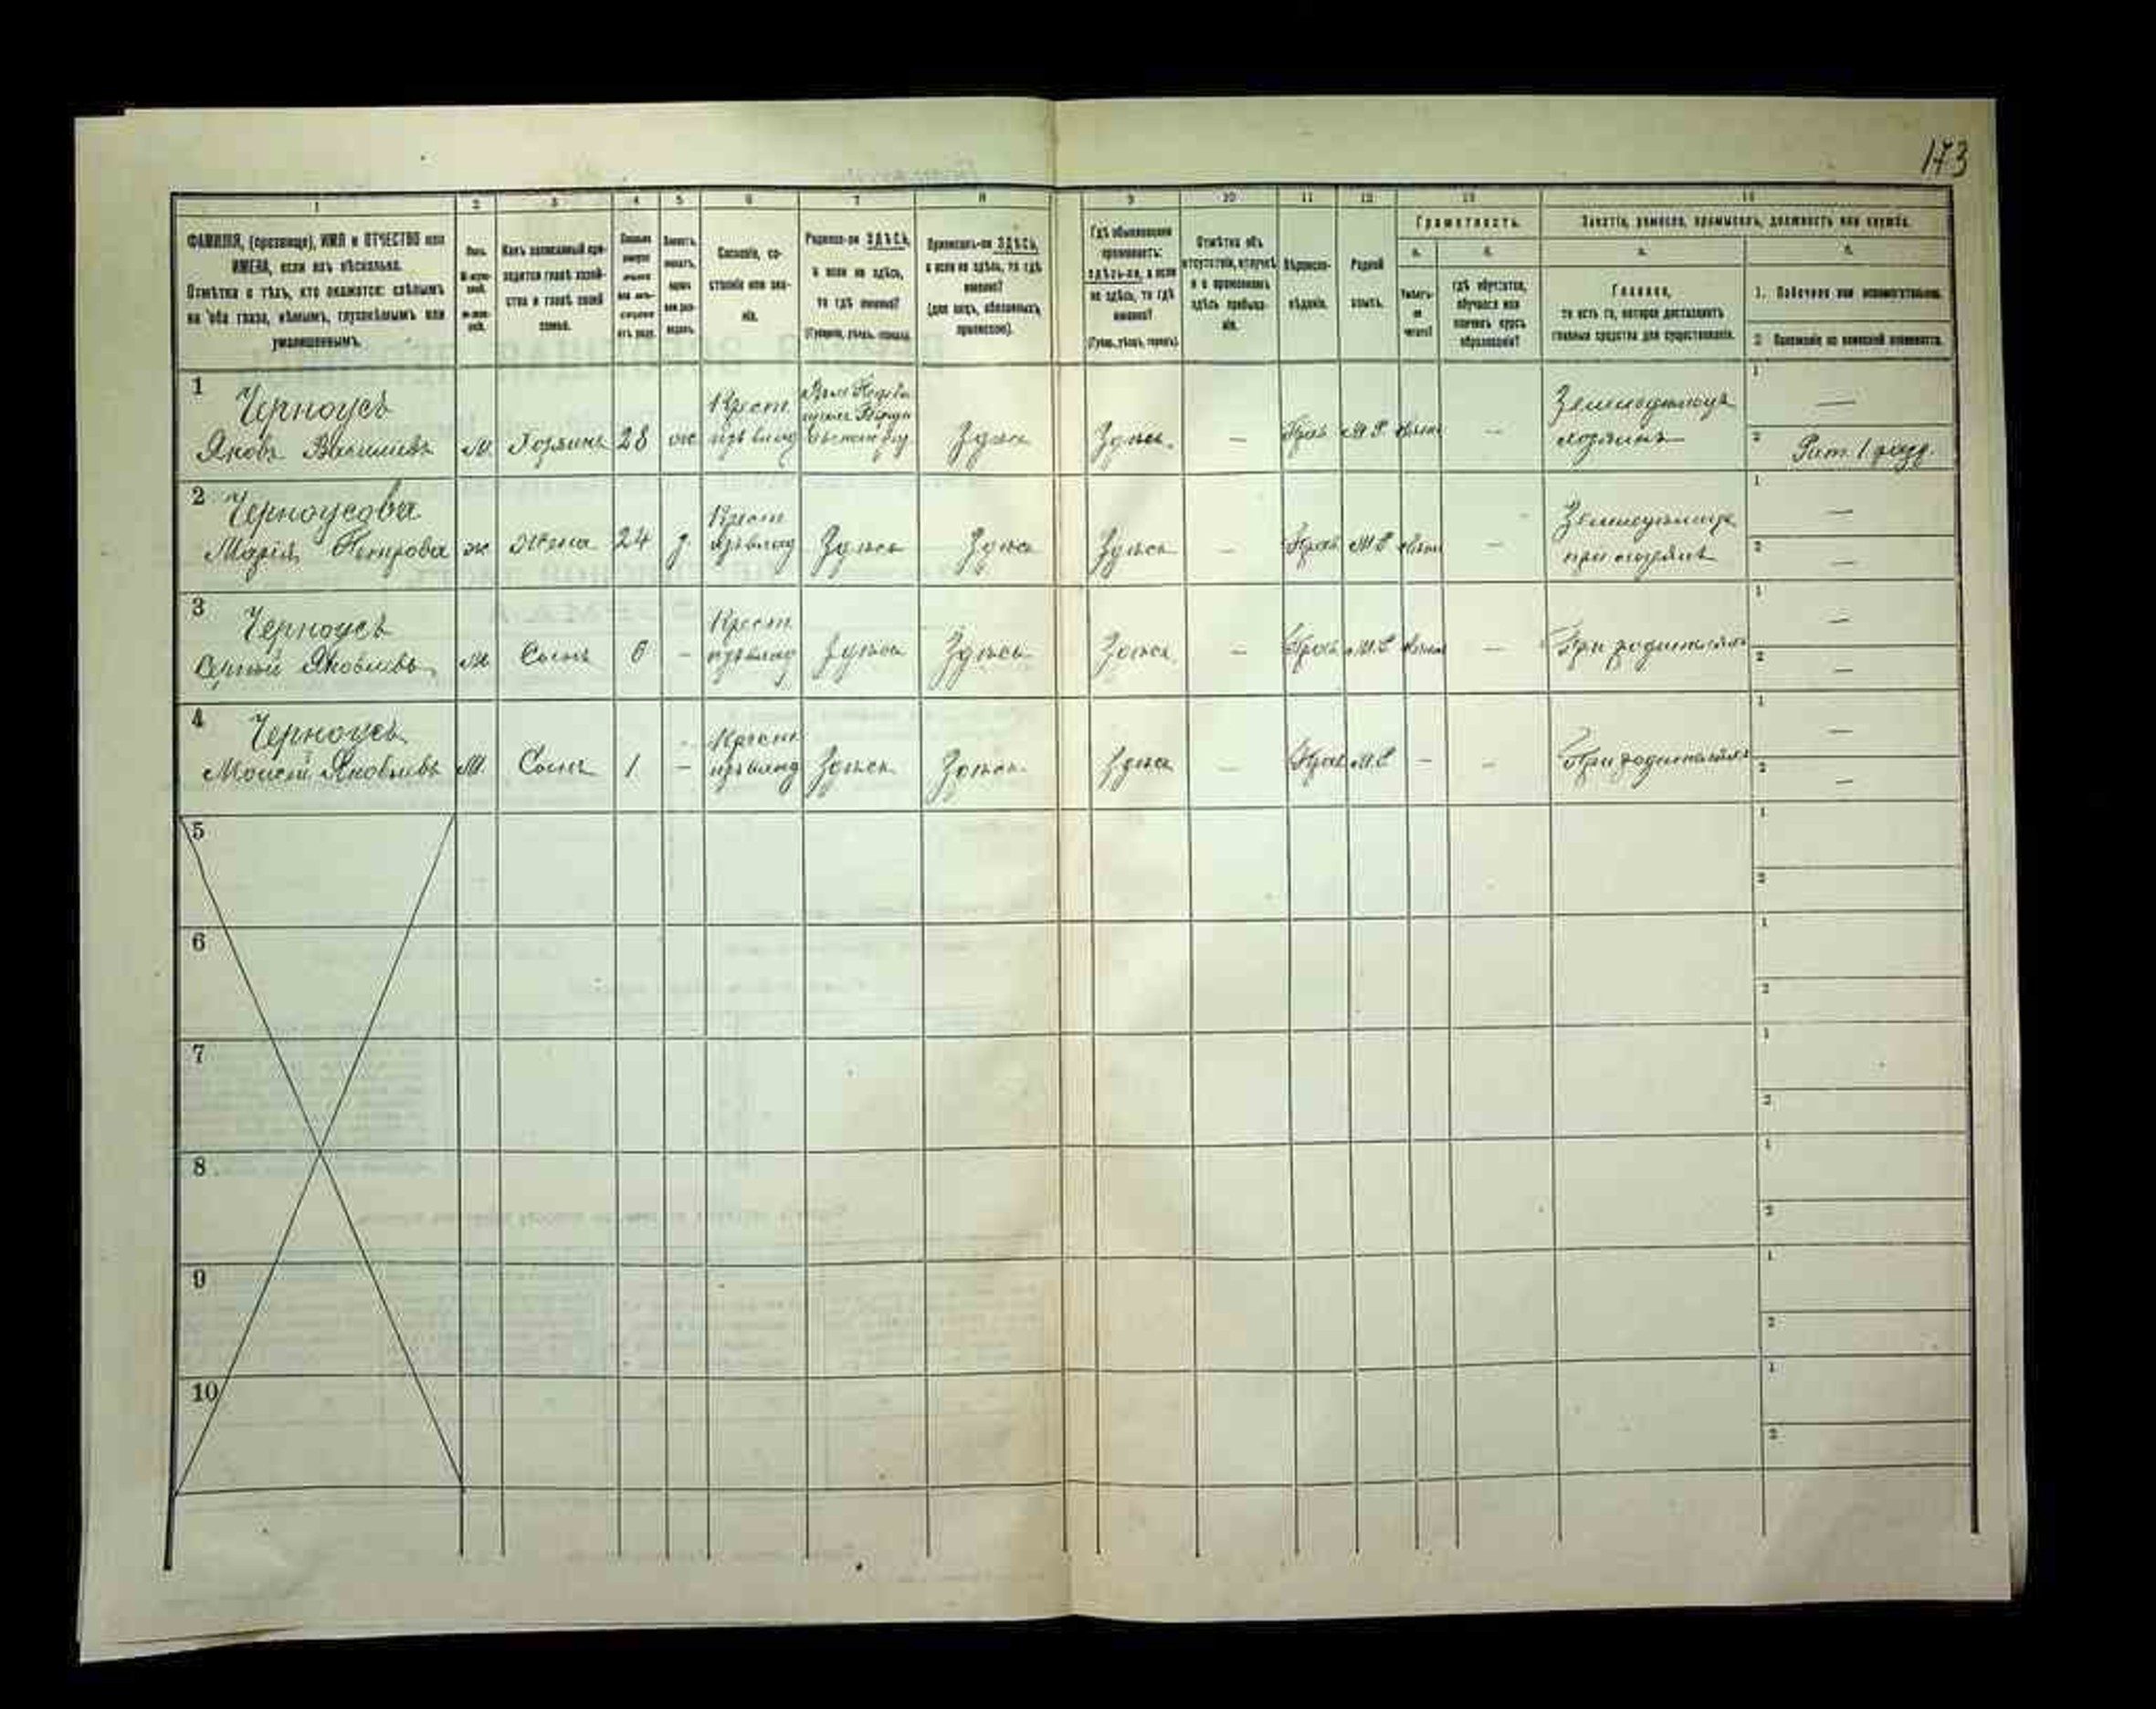 173
1 2 3 4 5 6 7 8 9 10 11 12 13 14
ФАМИЛІЯ, (прозвище), ИМЯ и ОТЧЕСТВО или
ИМЕНА, если ихъ нѣсколько.
Отмѣтка о тѣхъ, кто окажется: слѣпымъ
на оба глаза, нѣмымъ, глухонѣмымъ или
умалишеннымъ.
Полъ.
Какъ записанный при-
ходится главѣ хозяй-
ства и главѣ своей
семьи.
Сословіе, со-
стояніе или зва-
ніе.
Родился-ли ЗДѢСЬ,
а если не здѣсь,
то гдѣ именно?
(Губернія, уѣздъ, городъ).
Приписанъ-ли ЗДѢСЬ,
а если не здѣсь, то гдѣ
именно?
(для лицъ, обязанныхъ
припискою).
Гдѣ обыкновенно
проживаетъ:
здѣсь-ли, а если
не здѣсь, то гдѣ
именно?
(Губер., уѣздъ, городъ).
Отмѣтка объ
отсутствіи, отлучкѣ
и о временномъ
здѣсь пребыва-
ніи.
Вѣроиспо-
вѣданіе.
Родной
языкъ.
Грамотность.
а.
Умѣетъ-
ли
читать?
б.
гдѣ обучается,
обучался или
кончилъ курсъ
образованія?
Занятіе, ремесло, промыселъ, должность или служба.
а.
Главное,
то есть то, которое доставляетъ
главныя средства для существованія.
б.
1. Побочное или вспомогательное.
2. Положеніе по воинской повинности.
1 Черноусъ
Яковъ Васильевъ М. Хозяинъ 28 ж
Крест.
изъ влад
Здѣсь Здѣсь. — Прав М.Р. —
Земледѣлецъ
хозяинъ
1 —
2 Рат. 1 разр.
2 Черноусова
Марія Петрова ж Жена 24 з.
Крест
изъ влад Здѣсь Здѣсь Здѣсь — Прав М.Р —
при хозяинѣ
1 —
2 —
3 Черноусъ
Сергѣй Яковлевъ М Сынъ 6 —
Крест
изъ влад Здѣсь Здѣсь Здѣсь — Прав М.Р —
При родителяхъ
1 —
2 —
4 Черноусъ
Моисей Яковлевъ М. Сынъ 1 —
Крест
изъ влад Здѣсь Здѣсь Здѣсь — Прав М.Р — —
При родителяхъ
1 —
2 —
5 1
2
6 1
2
7 1
2
8 1
2
9 1
2
10 1
2